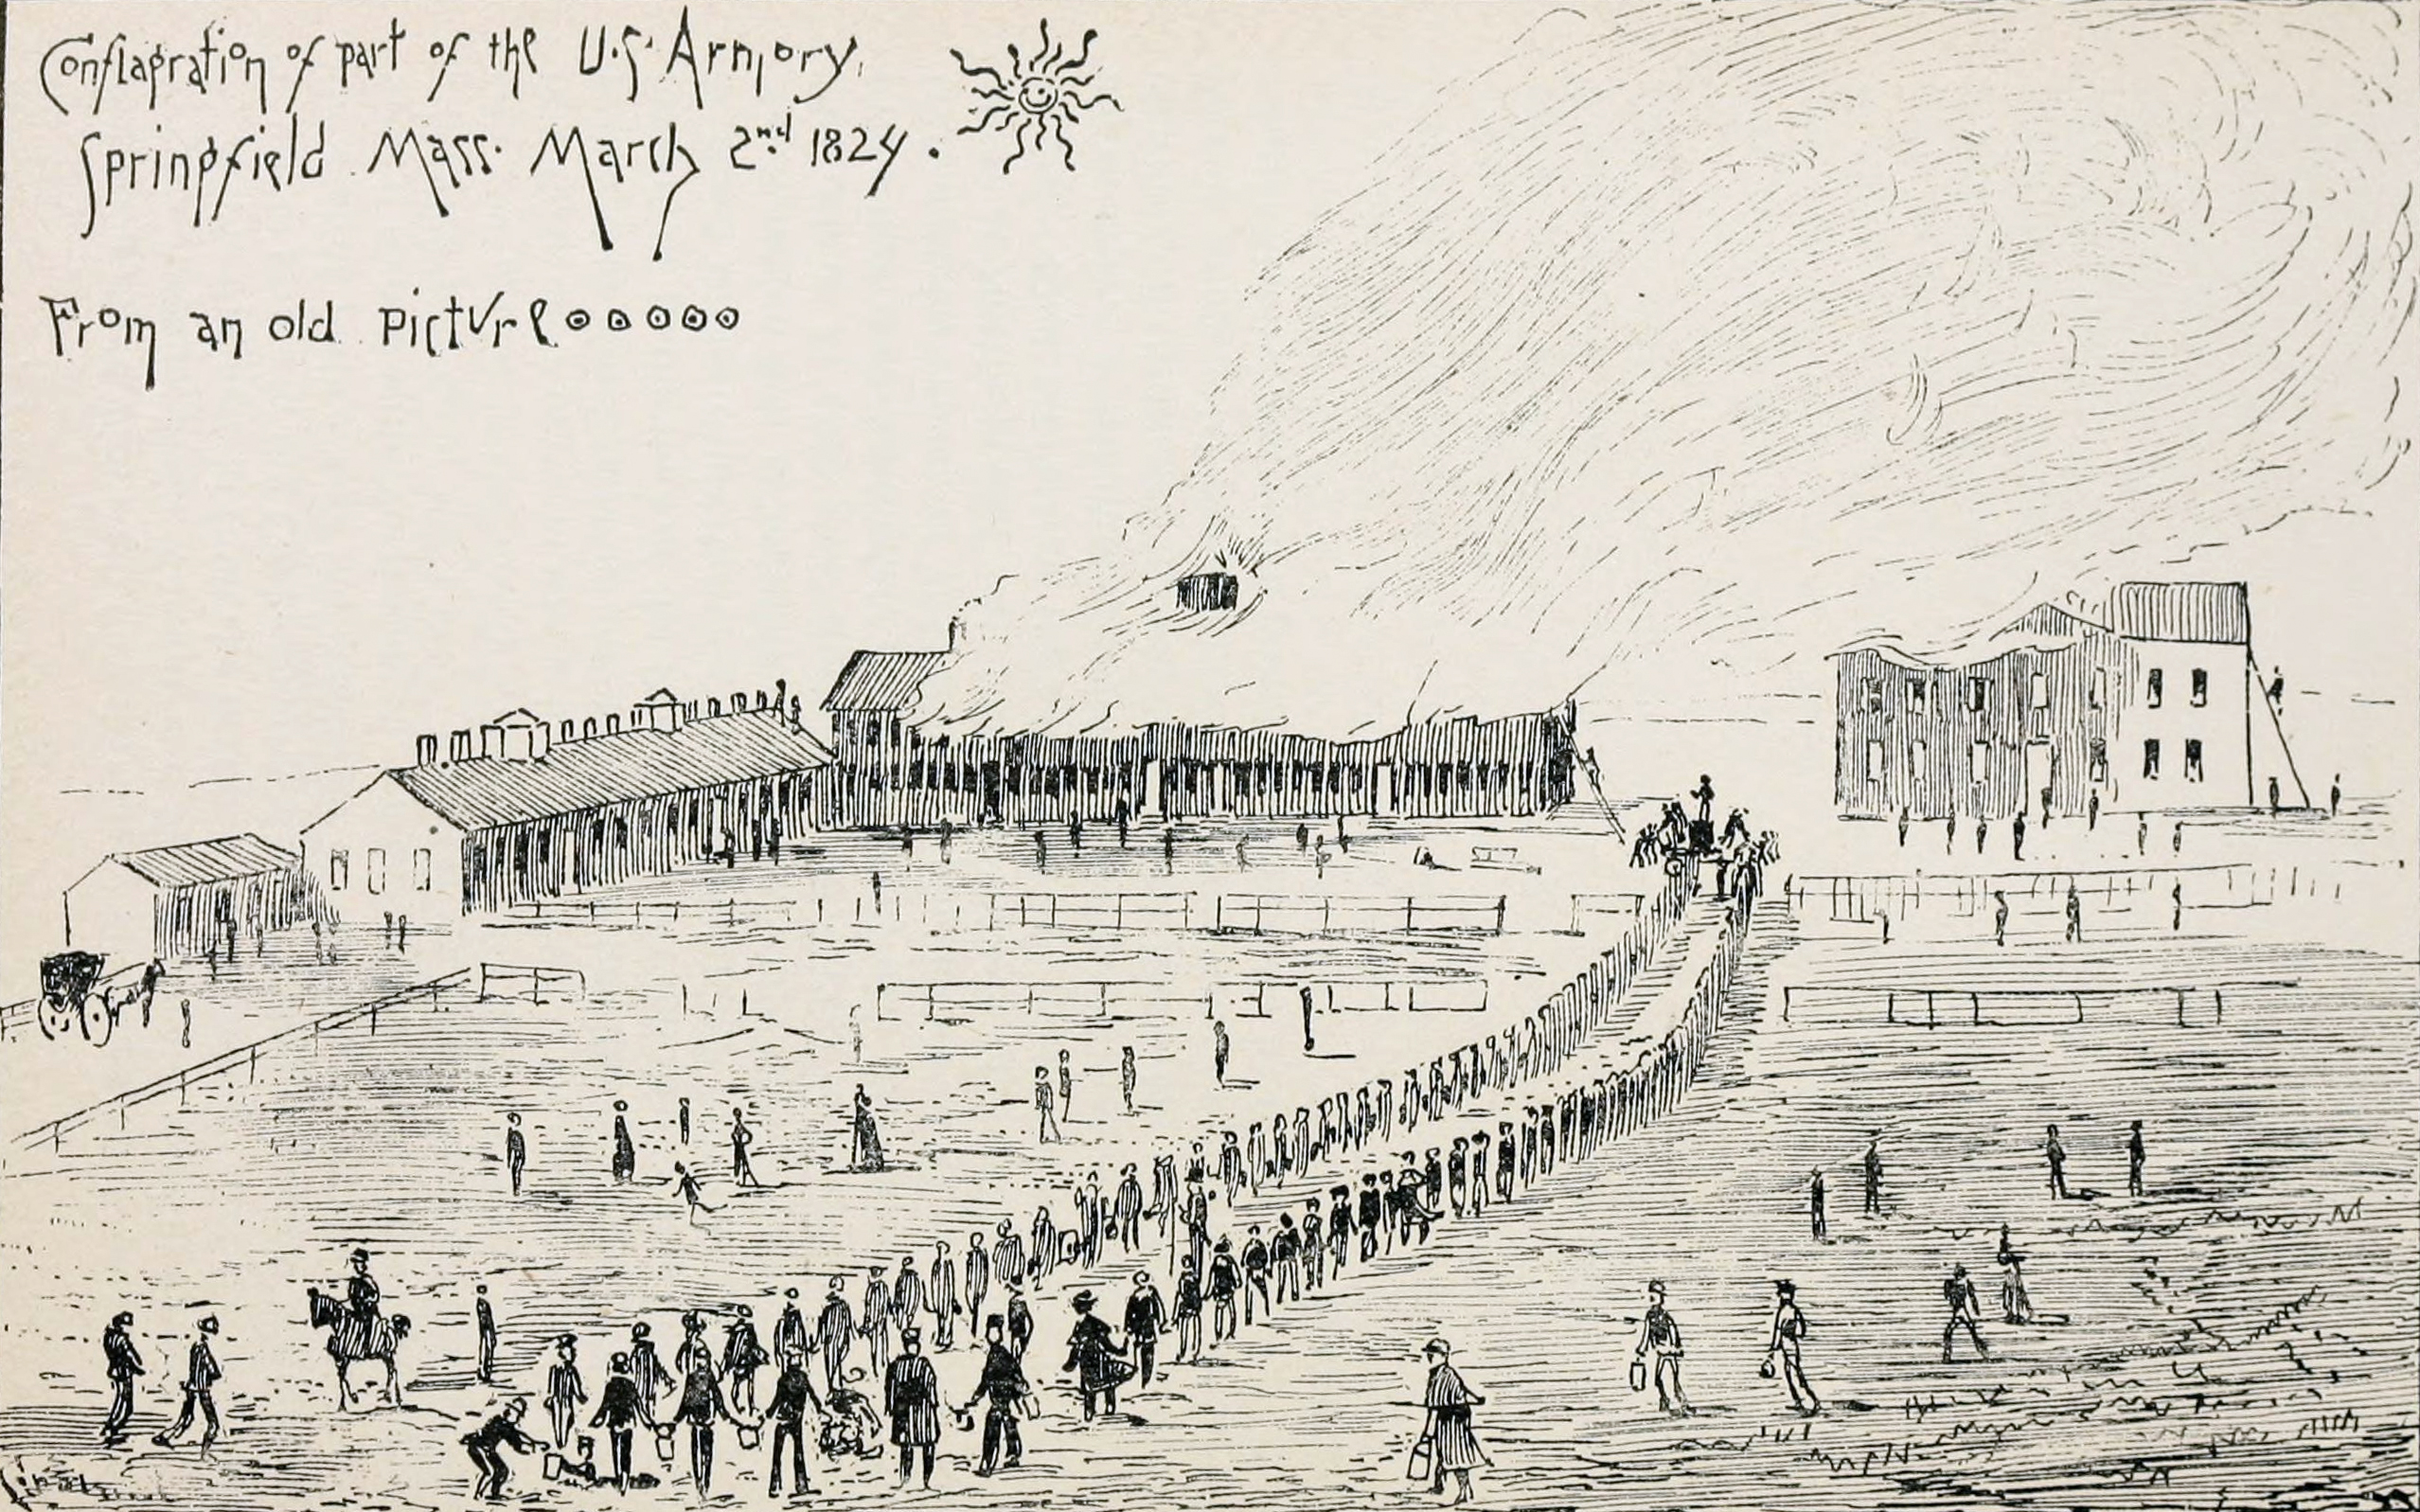 Conflagration of part of the U.S. Armory,
Springfield Mass. March 2nd 1824.
From an old picture